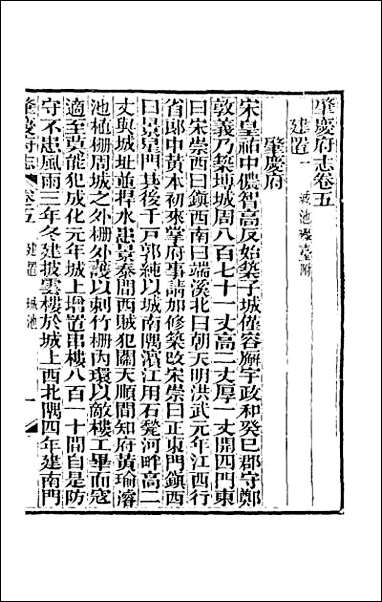 肇慶府志卷五
建置一 城池
肇慶府
宋皇祐中儂智高反始築子城僅容廨宇政和癸巳郡守鄭
敦義乃築城周八百七十一丈高二丈厚一丈開四門東
曰宋崇西曰鎮西南曰端溪北曰朝天明洪武元年江西行
省郎中黃本初來掌府事請加修築改宋崇曰正東門鎮西
曰景星門其後千戶郭純以城南隅濱江用石甃河畔高二
丈與城址並捍水患景泰間西賊犯關天順間知府黃瑜濬
池植柵周城之外柵外護以刺竹柵內環以敵樓工畢而寇
適至莫能犯成化元年城上增置串樓八百一十間自是防
守不患風雨三年冬建披雲樓於城上西北隅四年建南門
肇慶府志 卷五 建置 城池 一